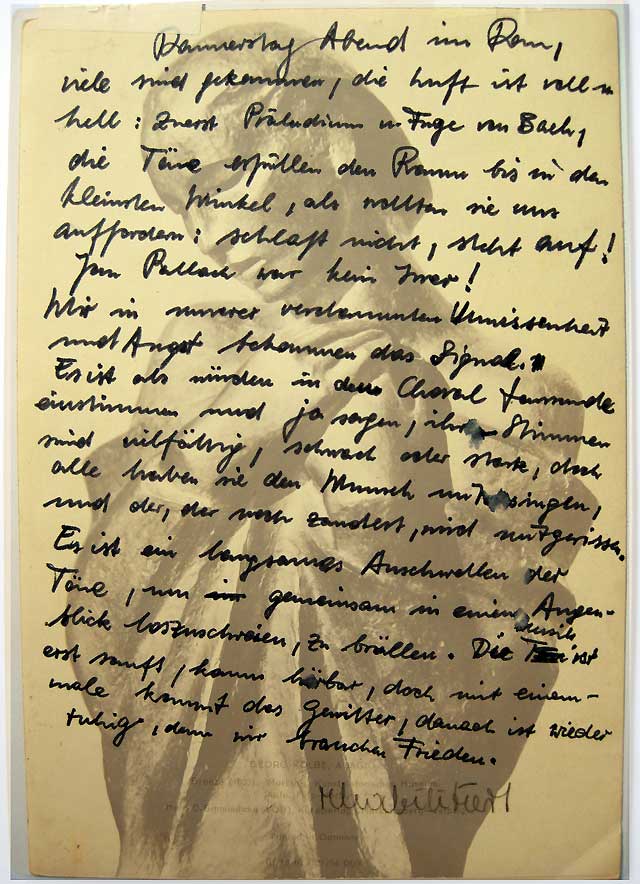 Donnerstag Abend im Dom,
viele sind gekommen, die Luft ist voll u
hell: Zuerst Präludium u Fuge von Bach,
die Töne erfüllen den Raum bis in den
kleinsten Winkel, als wollten sie uns
auffordern: schlaft nicht, steht auf!
Jan Pallach war kein Irrer!
Wir in unserer verdammten Unwissenheit
und Angst bekommen das Signal.
Es ist als würden in den Choral Tausende
einstimmen und ja sagen, ihre Stimmen
sind vielfältig, schwach oder stark, doch
alle haben sie den Wunsch mitzusingen,
und der, der noch zaudert, wird mitgerissen.
Es ist ein langsames Anschwellen der
Töne, um gemeinsam in einem Augen-
blick loszuschreien, zu brüllen. Die Musik ist
erst sanft, kaum hörbar, doch mit einem-
male kommt das Gewitter, danach ist wieder
ruhig, denn wir brauchen Frieden.
GEORG KOLBE
rehabilitiert